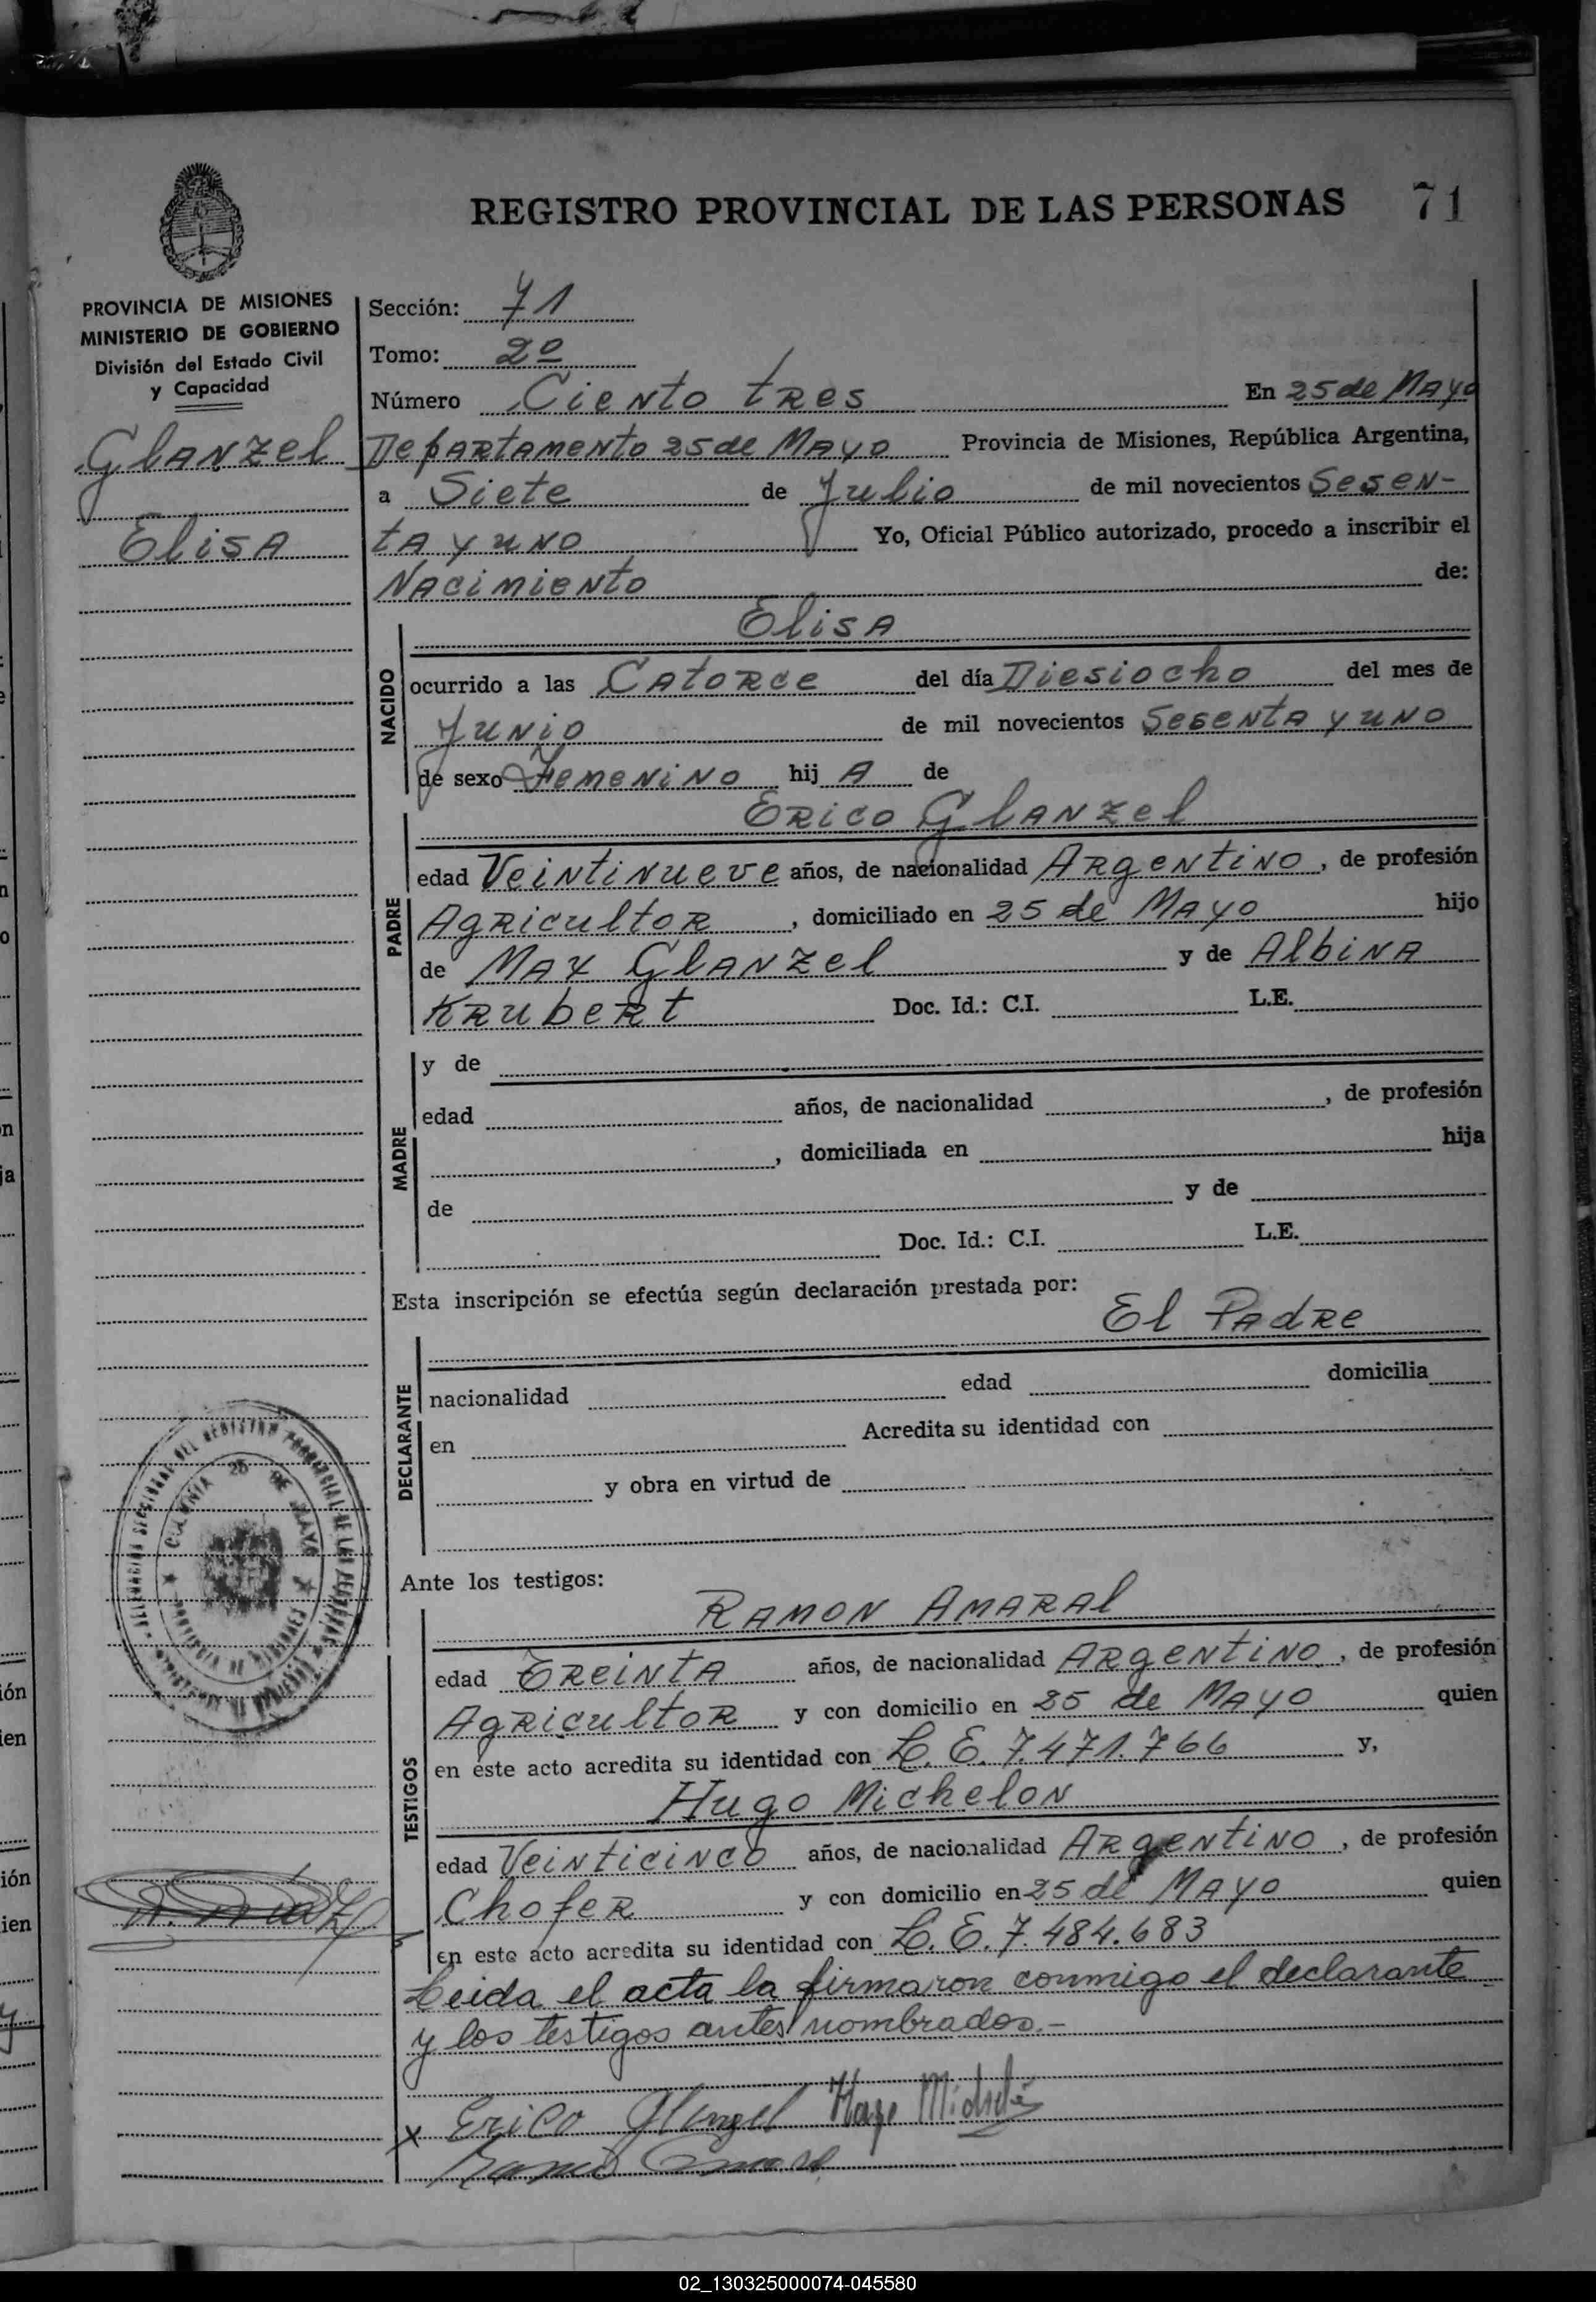 REGISTRO PROVINCIAL DE LAS PERSONAS 71
PROVINCIA DE MISIONES
MINISTERIO DE GOBIERNO
División del Estado Civil
y Capacidad
Glanzel
Elisa
Sección: 71
Tomo: 2º
Número Ciento tres En 25 de Mayo
Departamento 25 de Mayo Provincia de Misiones, República Argentina,
a Siete de Julio de mil novecientos Sesen-
ta y uno Yo, Oficial Público autorizado, procedo a inscribir el
Nacimiento de:
NACIDO
Elisa
ocurrido a las Catorce del día Diesiocho del mes de
Junio de mil novecientos Sesenta y uno
de sexo Femenino hij A de
PADRE
Erico Glanzel
edad Veintinueve años, de nacionalidad Argentino, de profesión
Agricultor, domiciliado en 25 de Mayo hijo
de Max Glanzel y de Albina
Krubert Doc. Id.: C.I. L.E.
MADRE
y de
edad años, de nacionalidad , de profesión
, domiciliada en hija
de y de
Doc. Id.: C.I. L.E.
Esta inscripción se efectúa según declaración prestada por:
El Padre
DECLARANTE
nacionalidad edad domicilia
en Acredita su identidad con
y obra en virtud de
Ante los testigos:
TESTIGOS
Ramon Amaral
edad Treinta años, de nacionalidad Argentino, de profesión
Agricultor y con domicilio en 25 de Mayo quien
en este acto acredita su identidad con L.E. 7.471.766 y,
Hugo Michelon
edad Veinticinco años, de nacionalidad Argentino, de profesión
Chofer y con domicilio en 25 de Mayo quien
en este acto acredita su identidad con L.E. 7.484.683
Leida el acta la firmaron conmigo el declarante
y los testigos antes nombrados.-
x Erico Glenzel Hugo
COLONIA 25 DE MAYO
PROVINCIA DE MISIONES
02_130325000074-045580